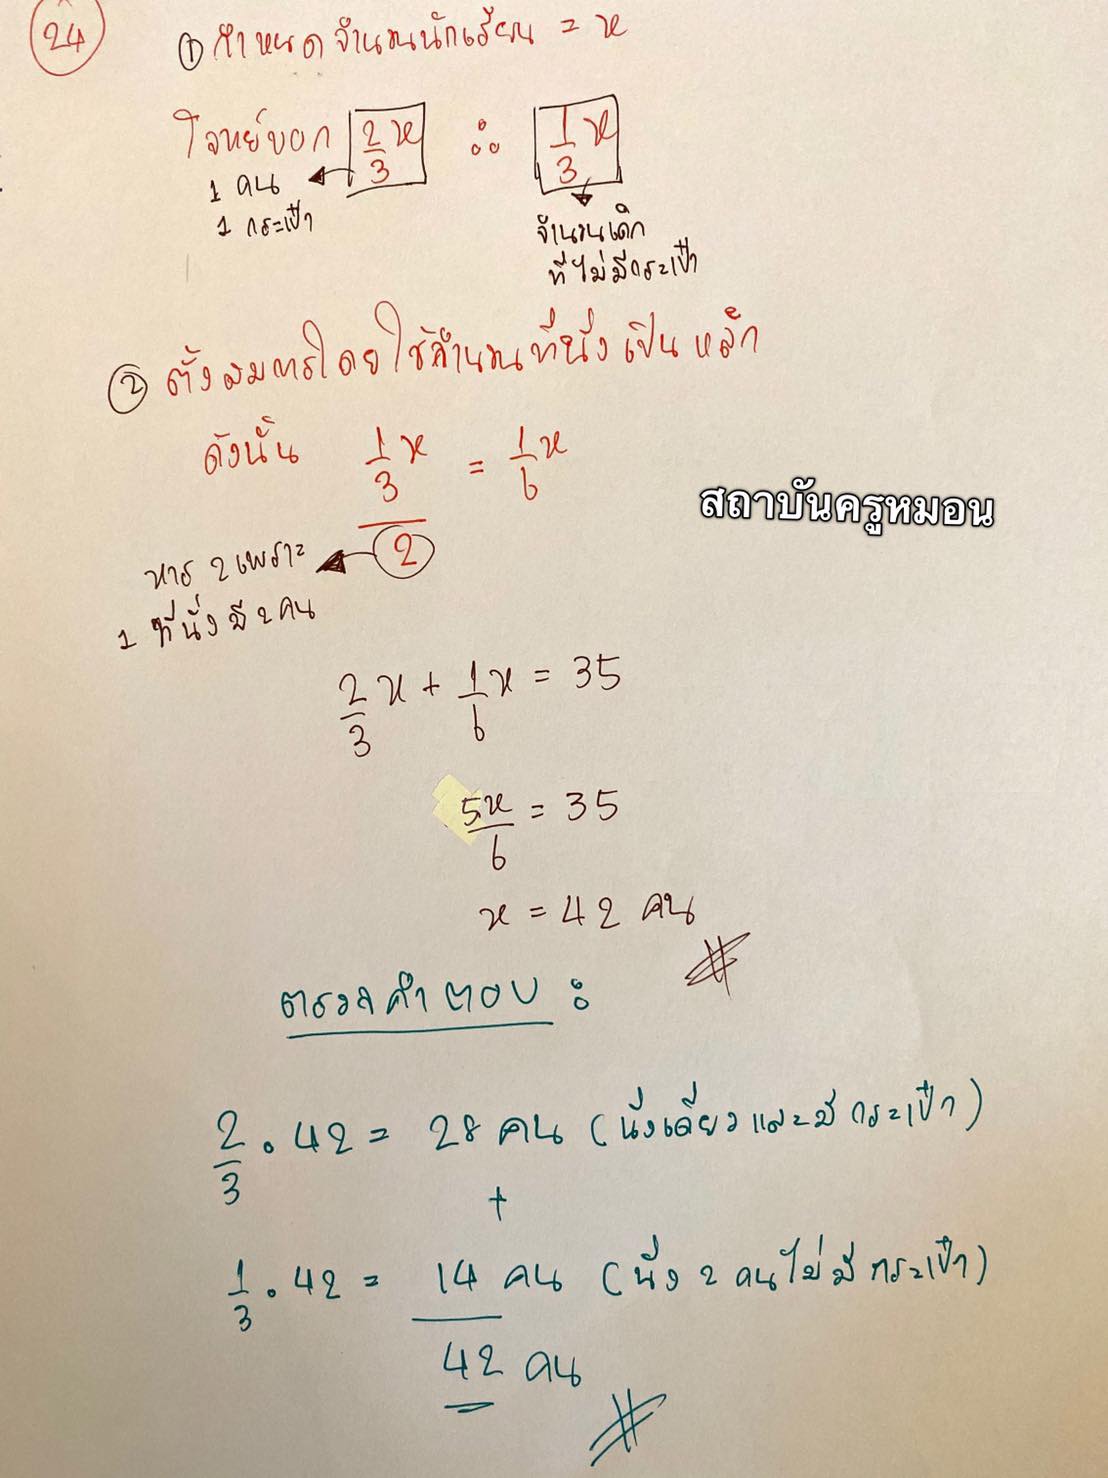 24
① กำหนดจำนวนนักเรียน = x
โจทย์บอก 2/3 x ∴ 1/3 x
1 คน
1 กระเป๋า
จำนวนเด็ก
ที่ไม่มีกระเป๋า
② ตั้งสมการโดยใช้จำนวนที่นั่งเป็นหลัก
ดังนั้น 1/3 x / 2 = 1/6 x
หาร 2 เพราะ
1 ที่นั่งมี 2 คน
สถาบันครูหมอน
2/3 x + 1/6 x = 35
5x/6 = 35
x = 42 คน
ตรวจคำตอบ :
2/3 . 42 = 28 คน (นั่งเดี่ยวและมีกระเป๋า)
+
1/3 . 42 = 14 คน (นั่ง 2 คนไม่มีกระเป๋า)
42 คน